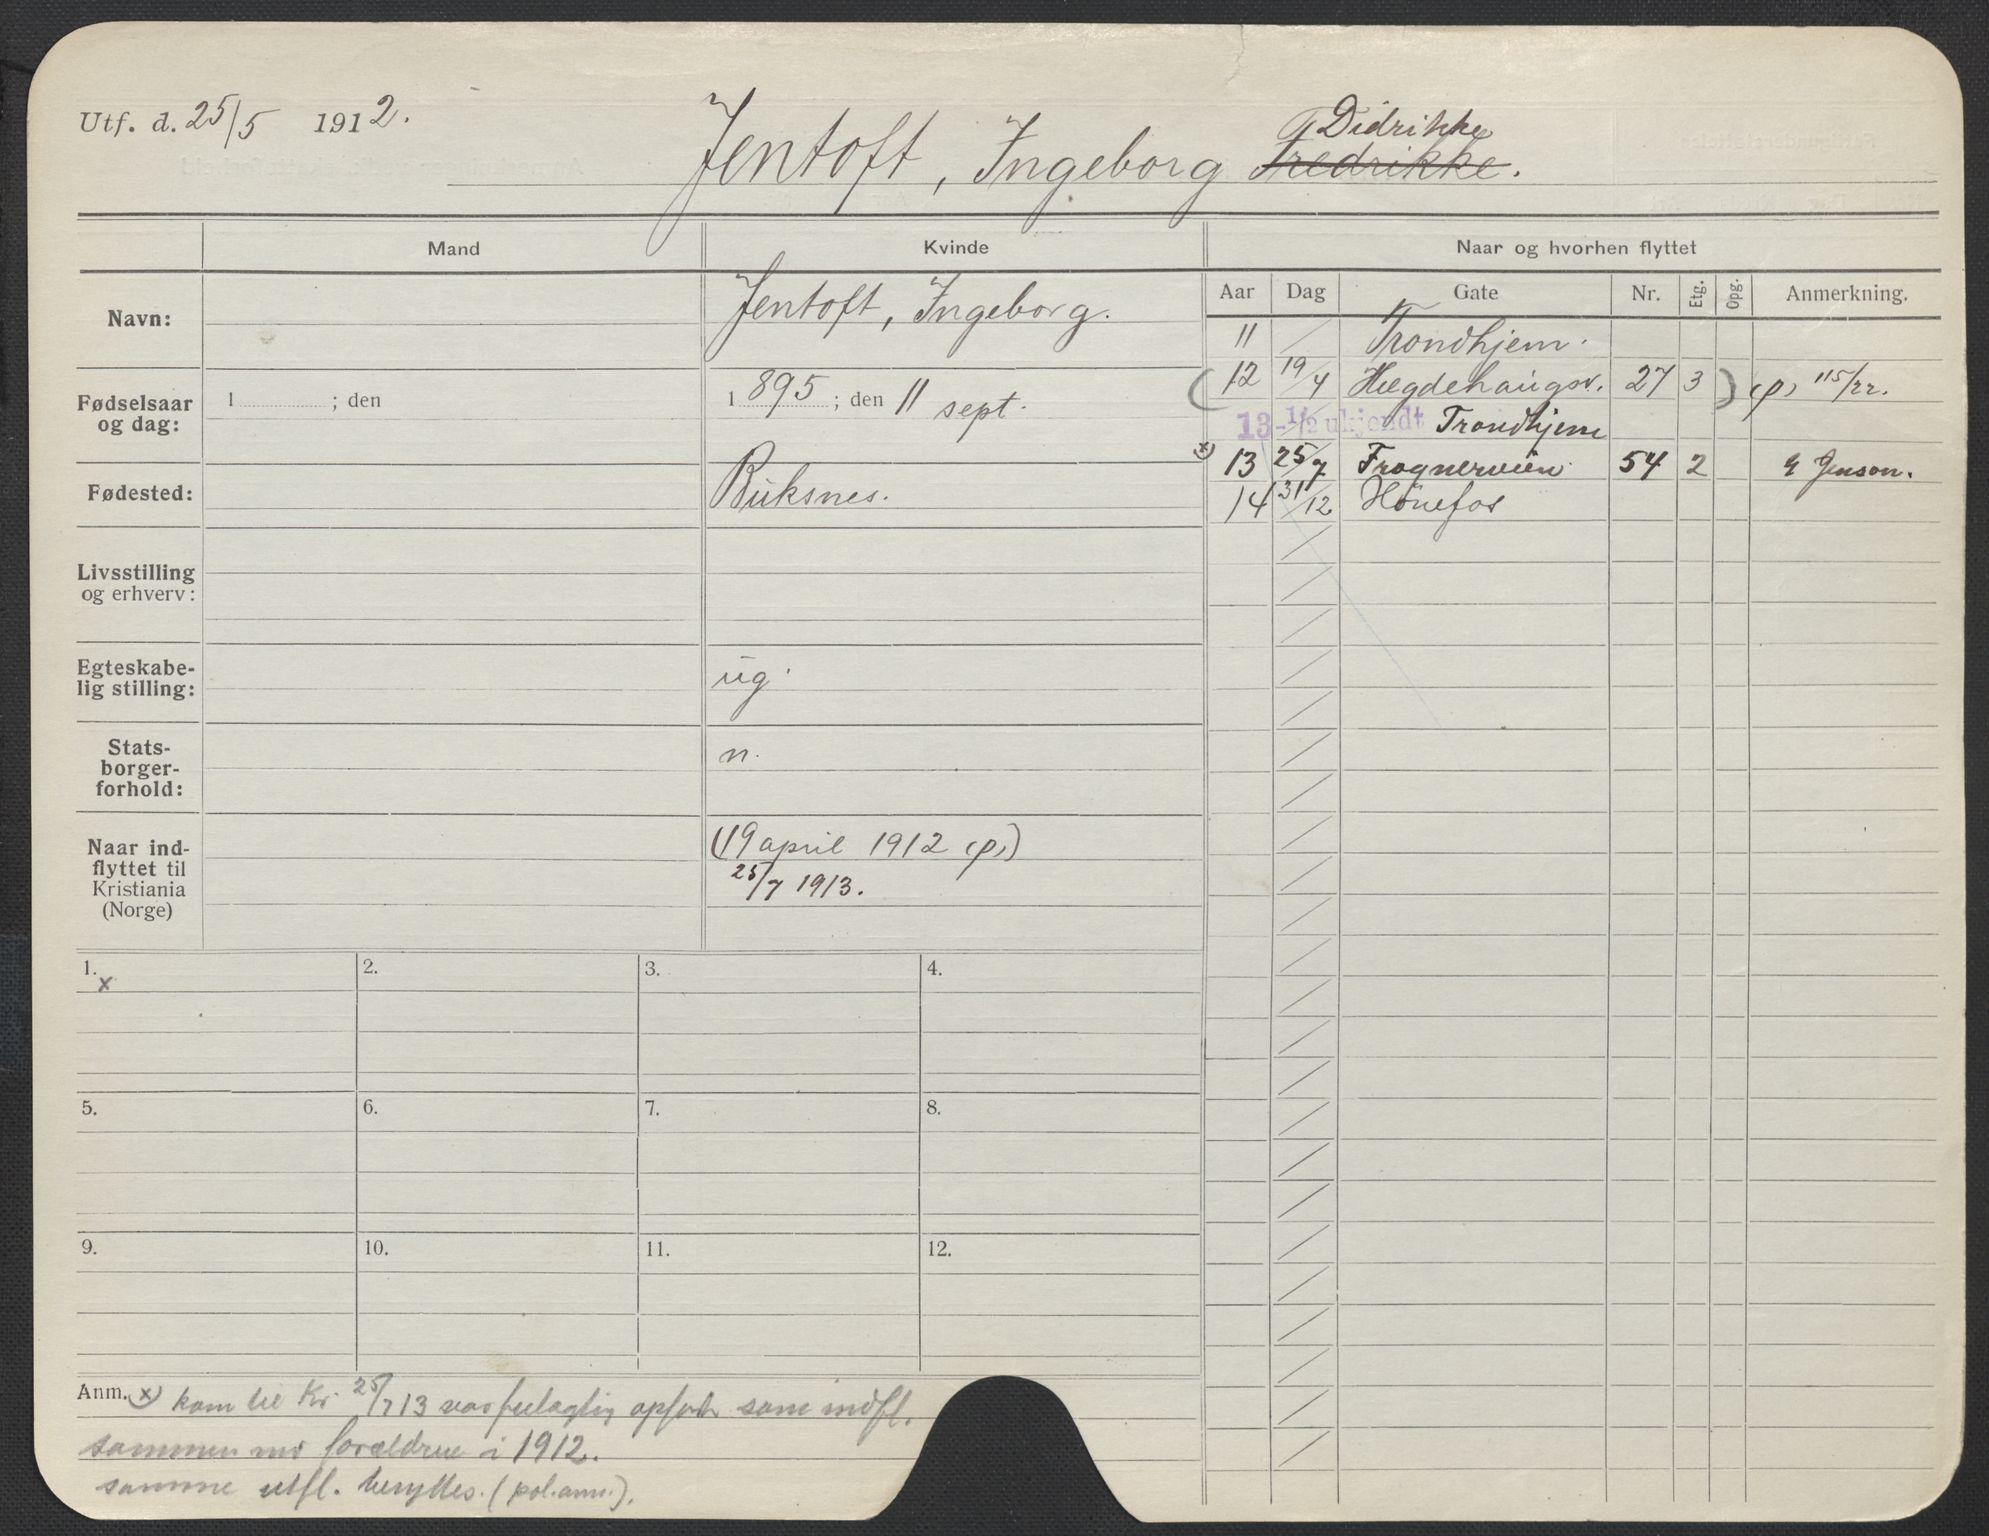 Utf. d. 25/5 1912.
Didrikke
Jentoft, Ingeborg Fredrikke.
Mand
Kvinde
Naar og hvorhen flyttet
Aar Dag Gate Nr. Etg. Opg. Anmerkning.
Navn:
Jentoft, Ingeborg.
Fødselsaar
og dag:
1 ; den
1 895 ; den 11 sept.
Fødested:
Buksnes.
Livsstilling
og erhverv:
Egteskabe-
lig stilling:
ug.
Stats-
borger-
forhold:
n.
Naar ind-
flyttet til
Kristiania
(Norge)
(19 april 1912 (p.)
25/7 1913.
11 Trondhjem.
(12 19/4 Hægdehaugsv. 27 3 ) (p) 115/22.
13 - 1/2 ukjendt Trondhjem
x) 13 25/7 Frognerveien 54 2 Jenson.
14 31/12 Hønefos
1.
x
2.
3.
4.
5.
6.
7.
8.
9.
10.
11.
12.
Anm. x) kom til Kr. 25/7 13 var feilagtig opført som indfl.
sammen m forældrene i 1912.
samme utfl. benyttes. (pol.anm.).